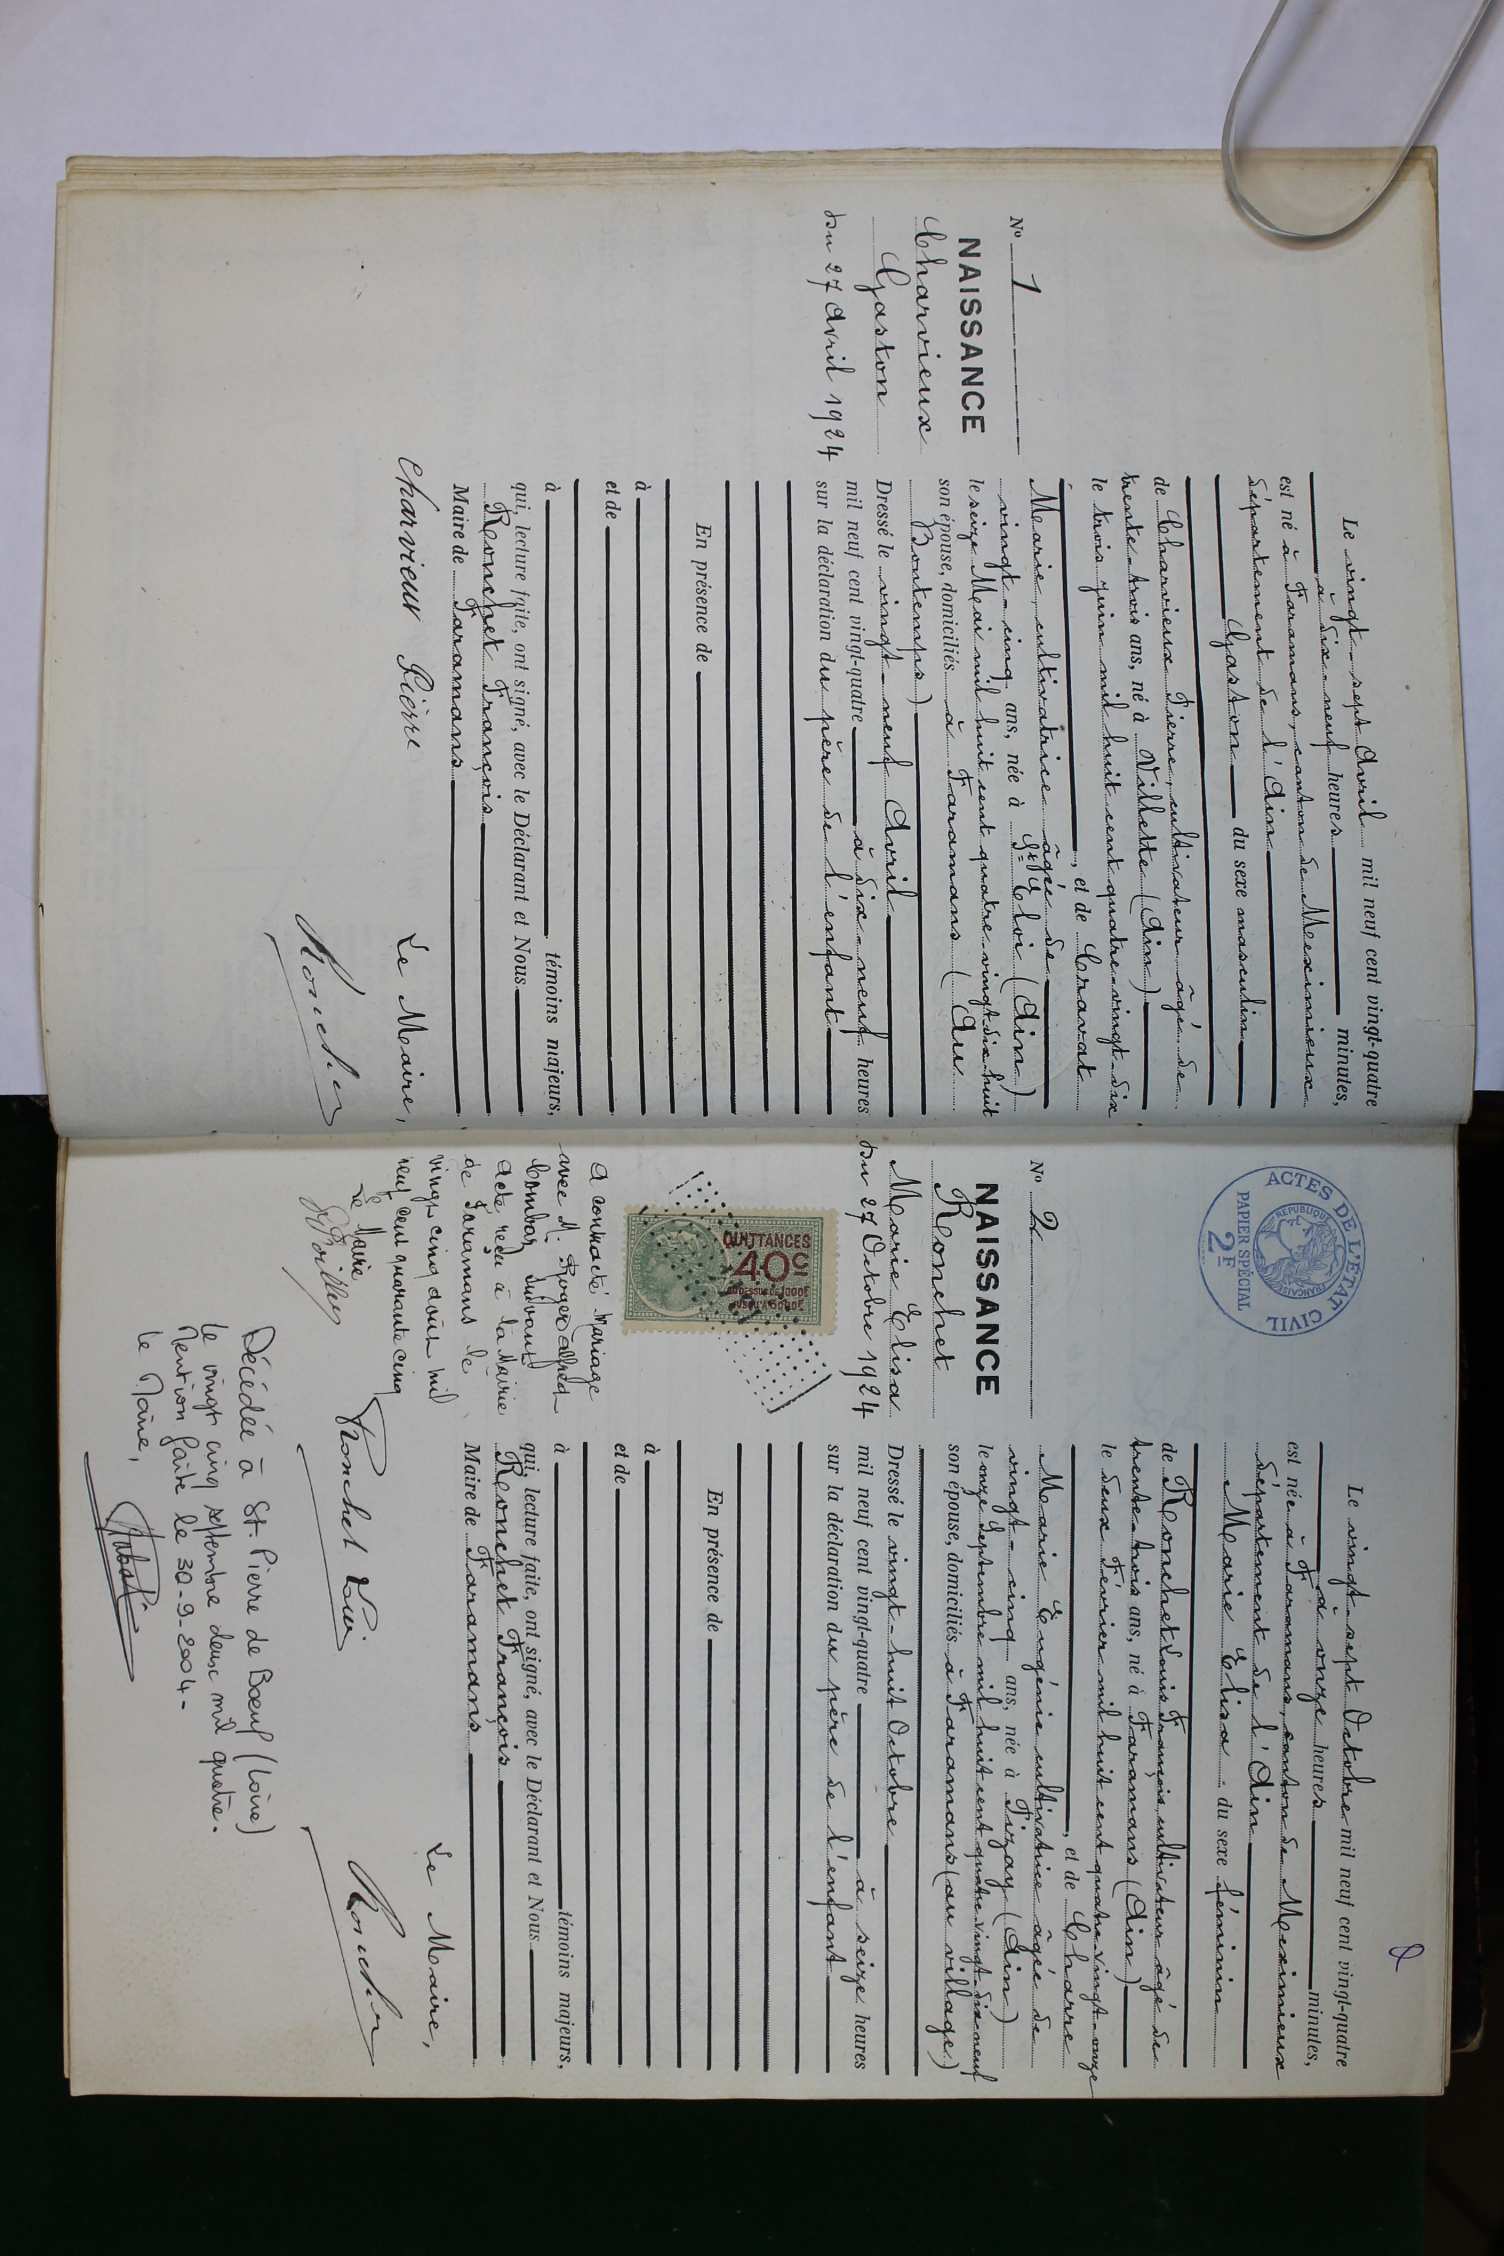 N° 1
NAISSANCE
Charvieux
Gaston
du 27 Avril 1924
Le vingt-sept Avril mil neuf cent vingt-quatre
à dix-neuf heures minutes,
est né à Faramans, canton de Meximieux
département de l'Ain
Gaston du sexe masculin
de Charvieux Pierre, cultivateur âgé de
trente-trois ans, né à Villette (Ain)
le trois juin mil huit cent quatre-vingt-dix
, et de Cravat
Marie, cultivatrice âgée de
vingt-cinq ans, née à St Eloi (Ain)
le seize Mai mil huit cent quatre-vingt-dix-huit
son épouse, domiciliés à Faramans (Au
Bontemps)
Dressé le vingt-neuf Avril
mil neuf cent vingt-quatre à dix-neuf heures
sur la déclaration du père de l'enfant
En présence de
à
et de
à témoins majeurs,
qui, lecture faite, ont signé, avec le Déclarant et Nous
Ronchet François
Maire de Faramans
Charvieux Pierre
Le Maire,
Ronchet
ACTES DE L'ETAT CIVIL
REPUBLIQUE FRANÇAISE
PAPIER SPÉCIAL
2F
N° 2
NAISSANCE
Ronchet
Marie Elisa
du 27 Octobre 1924
QUITTANCES
40c
A contracté Mariage
avec M. Roger Alfred
suivant
acte reçu à la Mairie
de Faramans le
vingt cinq août mil
neuf cent quarante cinq
Le Maire
Le vingt-sept Octobre mil neuf cent vingt-quatre
à onze heures minutes,
est née à Faramans, canton de Meximieux
département de l'Ain
Marie Elisa du sexe féminin
de Ronchet Louis François, cultivateur âgé de
trente-trois ans, né à Faramans (Ain)
le deux Février mil huit cent quatre-vingt-onze
, et de Charre
Marie Eugénie cultivatrice âgée de
vingt-cinq ans, née à Pizay (Ain)
le onze Septembre mil huit cent quatre-vingt-dix-neuf
son épouse, domiciliés à Faramans (au village)
Dressé le vingt-huit Octobre
mil neuf cent vingt-quatre à seize heures
sur la déclaration du père de l'enfant
En présence de
à
et de
à témoins majeurs,
qui, lecture faite, ont signé, avec le Déclarant et Nous
Ronchet François
Maire de Faramans
Le Maire,
Ronchet Louis
Ronchet
Décédée à St. Pierre de Boeuf (Loire)
le vingt cinq septembre deux mil quatre.
Mention faite le 30-9-2004-
Le Maire,